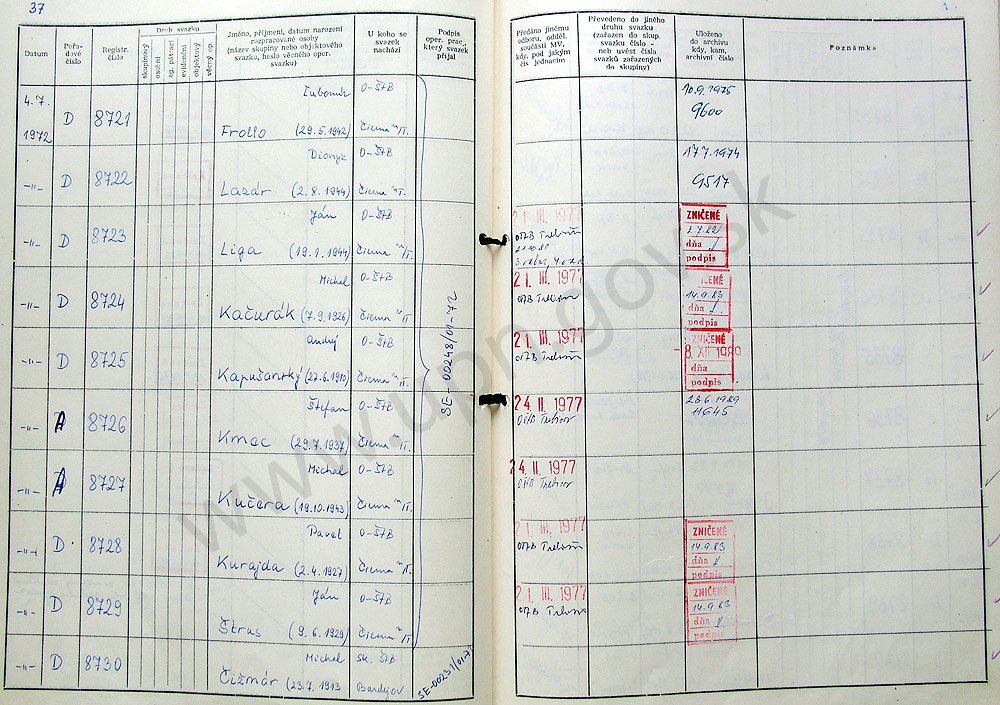 37
Datum
Pořadové číslo
Registr. číslo
Druh svazku
skupinový
osobní
ag. pátrací
evidenční
objektový
věcný op.
Jméno, příjmení, datum narození
rozpracované osoby
(název skupiny nebo objektového
svazku, heslo věcného oper.
svazku)
U koho se
svazek
nachází
Podpis
oper. prac.,
který svazek
přijal
Předáno jinému
odboru, odděl.
součásti MV,
kdy, pod jakým
čís jednacím
Převedeno do jiného
druhu svazku
(zařazen do skup.
svazku číslo -
neb uvést čísla
svazků zařazených
do skupiny)
Uloženo
do archivu
kdy, kam,
archivní číslo
Poznámka
4.7.
1972 D 8721 Ľubomír O-ŠtB 10.9.1975
Frollo (29.5.1942) Čierna n/T. 9600
-"- D 8722 Dionýz O-ŠtB 17.7.1974
Lazár (2.8.1944) Čierna n/T. 9517
-"- D 8723 Ján O-ŠtB 21. III. 1977 ZNIČENÉ
Liga (19.1.1944) Čierna n/T. dňa
podpis
-"- D 8724 Michal O-ŠtB 21. III. 1977 ZNIČENÉ
Kačurák (7.9.1926) Čierna n/T. 14.9.83
dňa
podpis
-"- D 8725 Andrej O-ŠtB 21. III. 1977 ZNIČENÉ
Kapušanský (27.6.1910) Čierna n/T. -8. XII. 1980
dňa
podpis
-"- A 8726 Štefan O-ŠtB 24. II. 1977 23.6.1989
Kmec (29.7.1937) Čierna n/T. 11645
-"- A 8727 Michal O-ŠtB 24. II. 1977
Kučera (19.10.1943) Čierna n/T.
-"- D 8728 Pavel O-ŠtB 21. III. 1977 ZNIČENÉ
Kurajda (2.4.1927) Čierna n/T. 14.9.83
dňa
podpis
-"- D 8729 Ján O-ŠtB 21. III. 1977 ZNIČENÉ
Štras (9.6.1929) Čierna n/T. 14.9.83
dňa
podpis
-"- D 8730 Michal Sk. ŠtB
Čižmár (23.7.1913 Bardejov
SE-00248/01-72
www.upn.gov.sk